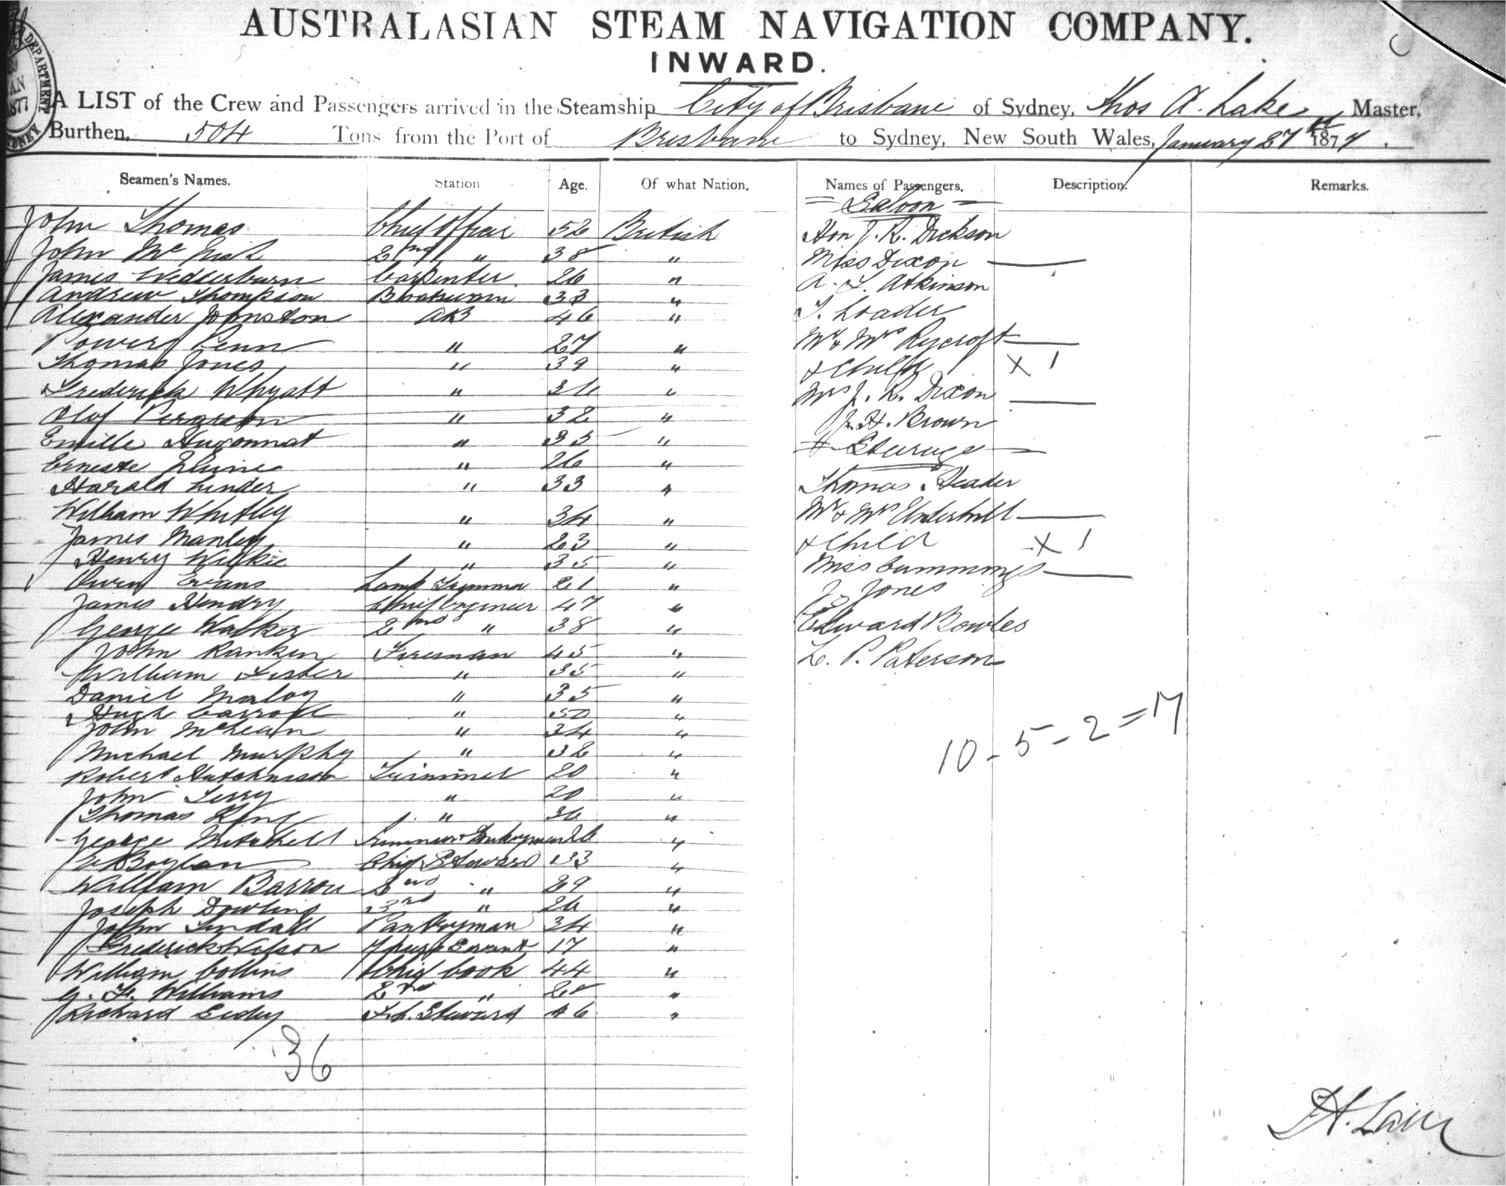 AUSTRALASIAN STEAM NAVIGATION COMPANY.
INWARD.
A LIST of the Crew and Passengers arrived in the Steamship City of Brisbane of Sydney, Thos A. Lake Master,
Burthen, 504 Tons from the Port of Brisbane to Sydney, New South Wales, January 27th 1877.
Seamen's Names. Station Age. Of what Nation. Names of Passengers, Description. Remarks.
= Saloon =
John Thomas Chief Officer 52 British Hon J. R. Dickson
John Mc 2nd " 38 " Miss Dixon
James Wedderburn Carpenter 26 " A. L. Atkinson
Andrew Thompson 33 " T. Loader
Alexander Johnston AB 46 "
Penn " 27 " Mr & Mrs Rycroft
Thomas Jones " 39 " & Child X 1
Frederick Whyatt " 36 " Mrs J. R. Dixon
Olof " 32 " J. H. Brown
Emille Hugonnat " 33 " Steerage
Erneste " 26 "
Harald Linder " 33 " Thomas
William Whitley " 34 " Mr & Mrs Underhill
James Manley " 23 " & Child X 1
Henry Wilkie " 35 " Miss Cummings
Owen Evans Lamp Trimmer 21 " J. Jones
James Hendry Chief Engineer 47 "
George Walker 2nd " 38 " Edward Bowles
John Ranken Fireman 45 " L. P. Paterson
William Lister " 35 "
Daniel Maloy " 35 "
Hugh Carroll " 50 "
John McLean " 34 "
Michael Murphy " 32 "
Robert Hutchinson Trimmer 20 "
John Terry " 20 "
Thomas King " 36 "
George Mitchell "
Boylan Chief Steward 33 "
William Barron 2nd " 29 "
Joseph Dowling 3rd " 26 "
John Tindall Pantryman 34 "
Frederick Wilson 17 "
William Collins Chief Cook 44 "
G. F. Williams 2nd " "
Richard F.C. Steward 46 "
36
10 - 5 - 2 = 17